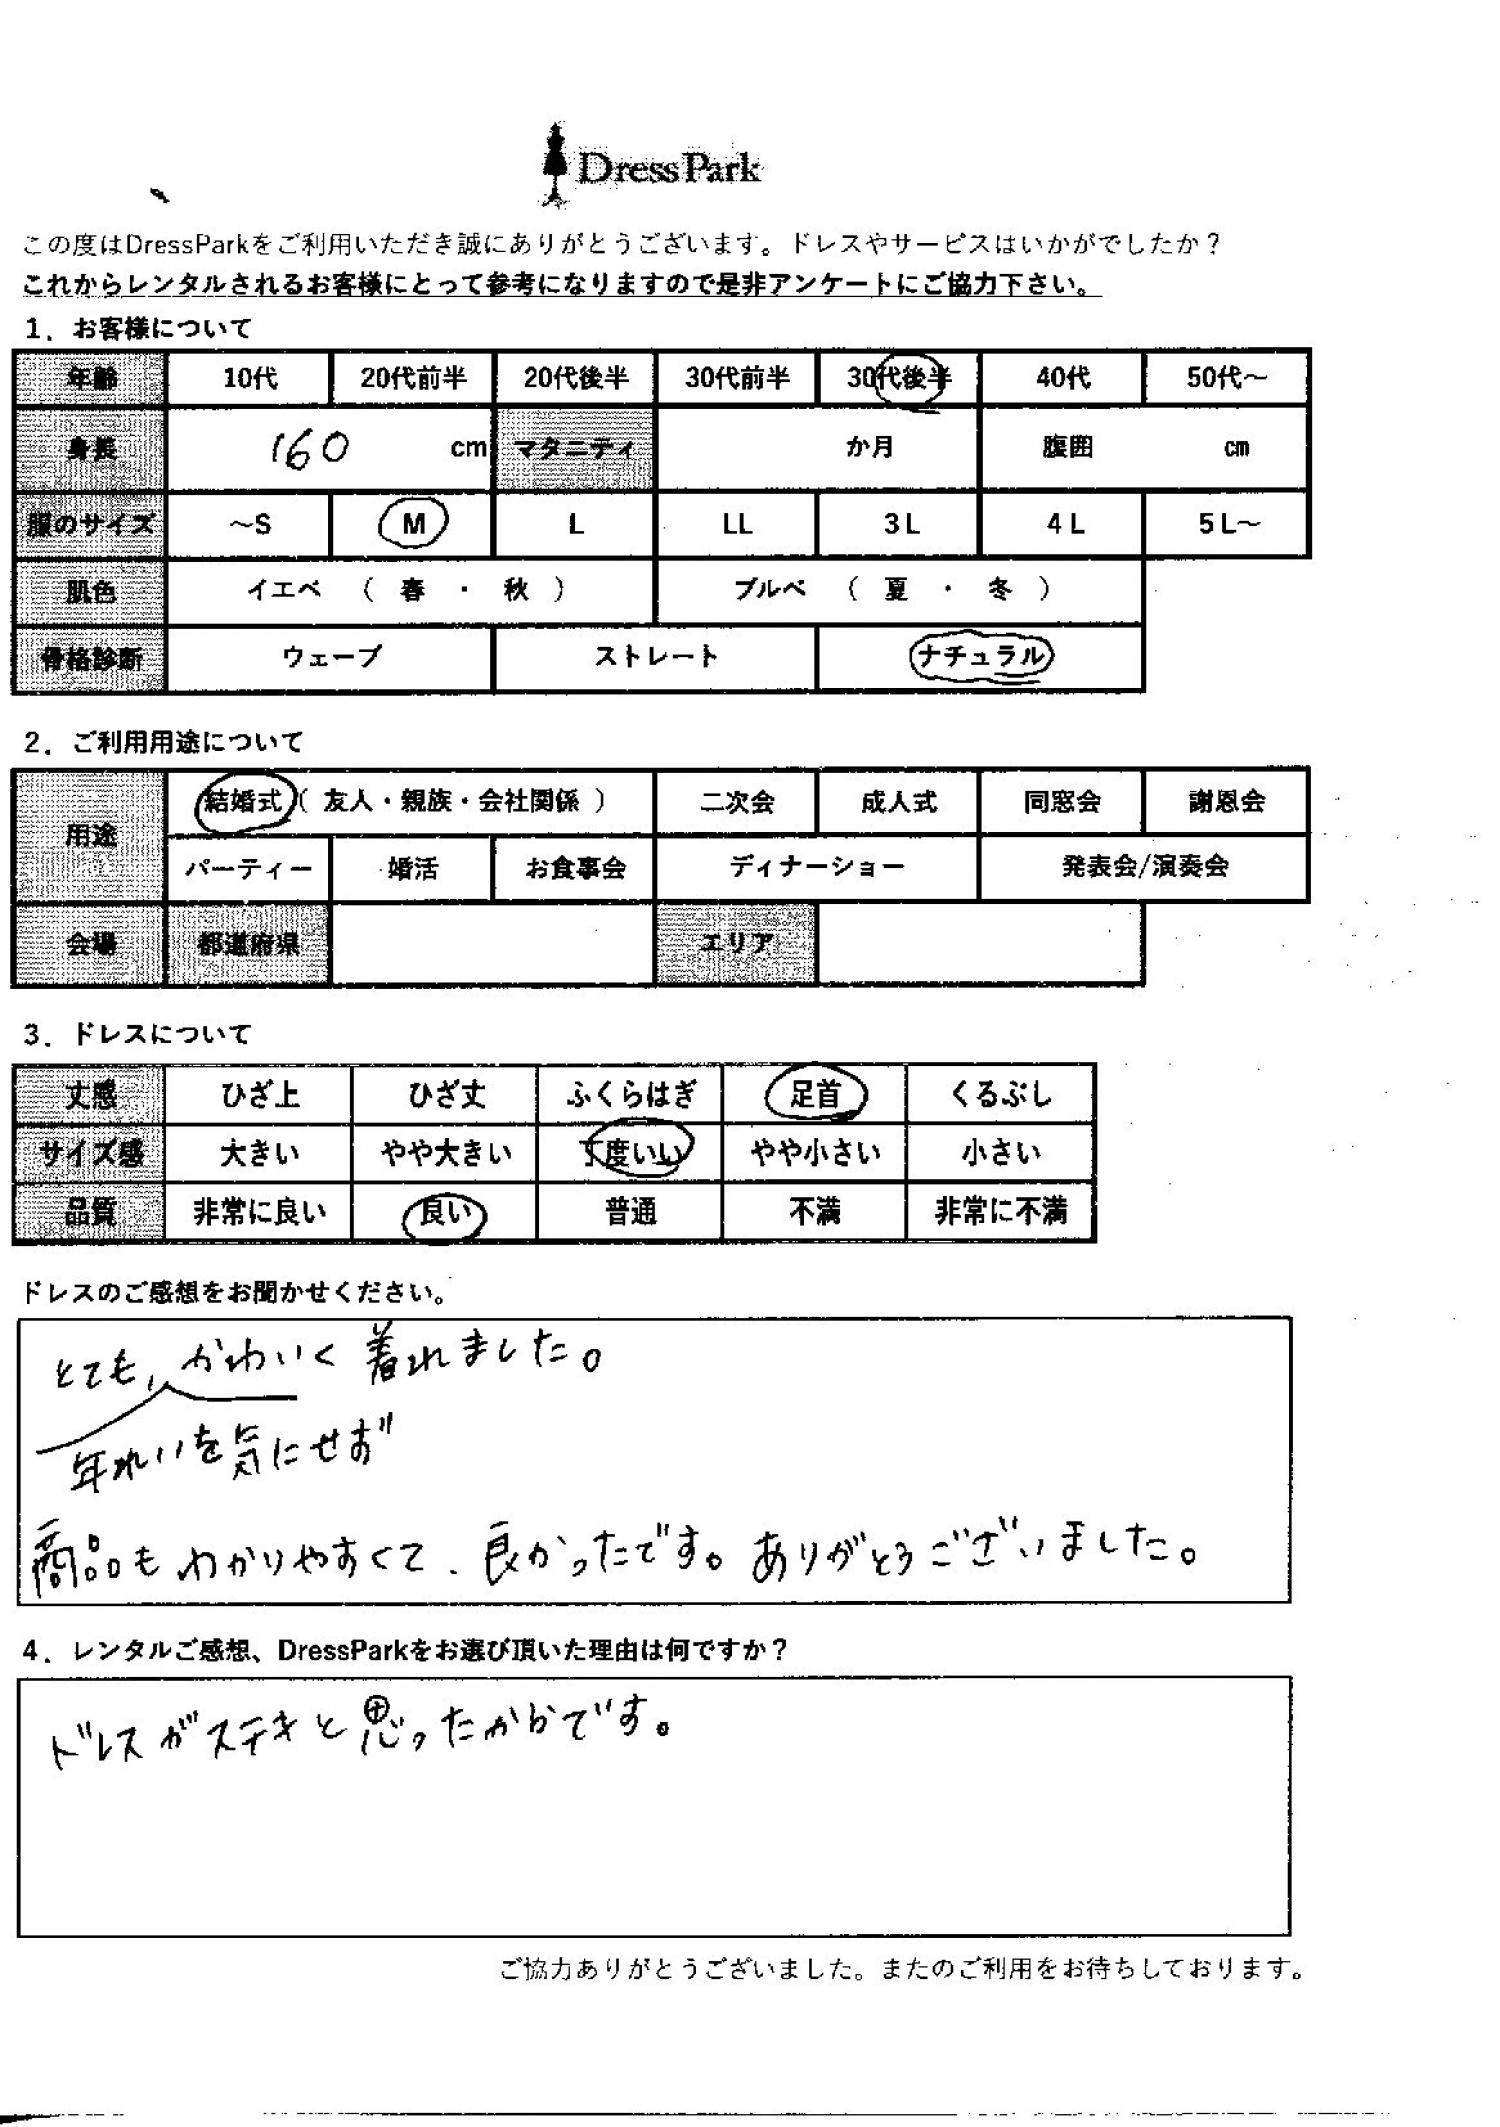 DressPark
この度はDressParkをご利用いただき誠にありがとうございます。ドレスやサービスはいかがでしたか？
これからレンタルされるお客様にとって参考になりますので是非アンケートにご協力下さい。
1．お客様について
年齢 10代 20代前半 20代後半 30代前半 30代後半 40代 50代～
身長 160 cm マタニティ か月 腹囲 cm
服のサイズ ～S M L LL 3L 4L 5L～
肌色 イエベ （ 春 ・ 秋 ） ブルベ （ 夏 ・ 冬 ）
骨格診断 ウェーブ ストレート ナチュラル
2．ご利用用途について
用途 結婚式（ 友人・親族・会社関係 ） 二次会 成人式 同窓会 謝恩会
パーティー 婚活 お食事会 ディナーショー 発表会/演奏会
会場 都道府県 エリア
3．ドレスについて
丈感 ひざ上 ひざ丈 ふくらはぎ 足首 くるぶし
サイズ感 大きい やや大きい 丁度いい やや小さい 小さい
品質 非常に良い 良い 普通 不満 非常に不満
ドレスのご感想をお聞かせください。
とても、かわいく着れました。
年れいを気にせず
商品もわかりやすくて、良かったです。ありがとうございました。
4．レンタルご感想、DressParkをお選び頂いた理由は何ですか？
ドレスがステキと思ったからです。
ご協力ありがとうございました。またのご利用をお待ちしております。